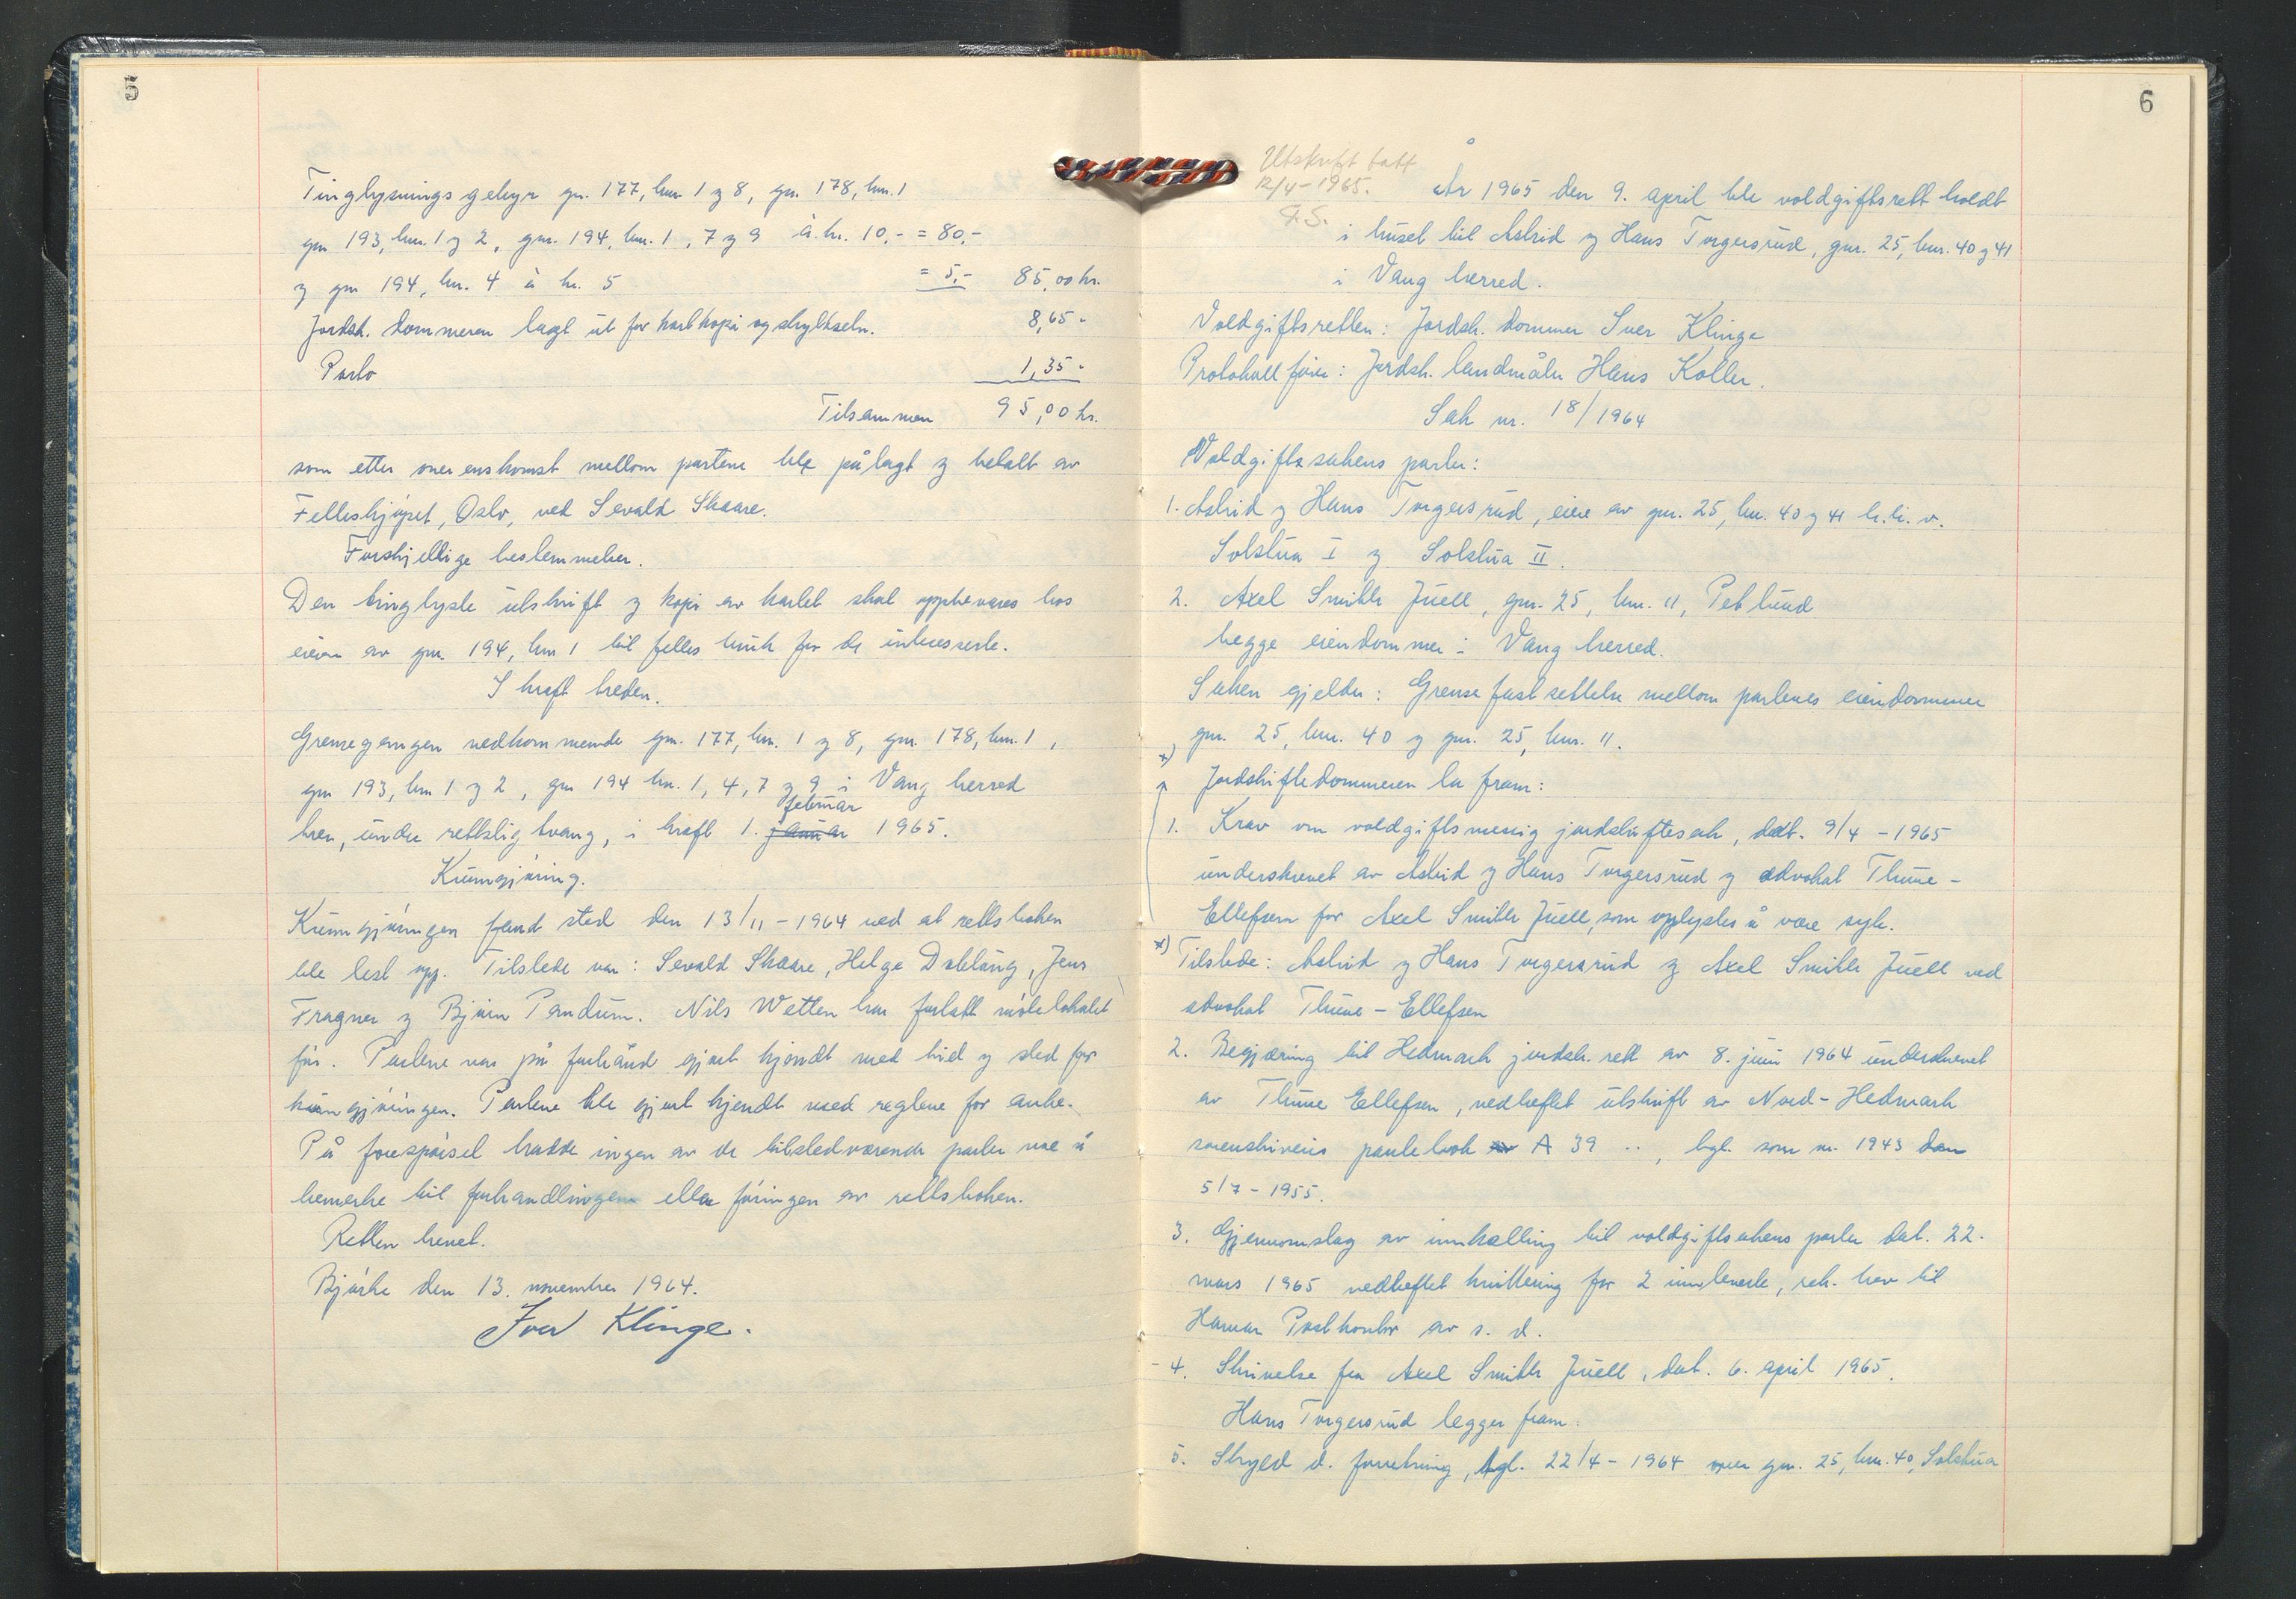 5
Tinglysnings gebyr gn. 177, bnr. 1 og 8, gn. 178, bnr. 1
gnr 193, bnr. 1 og 2, gnr. 194, bnr. 1, 7 og 9 à kr. 10,- = 80,-
og gnr 194, bnr. 4 à kr. 5 = 5,- 85,00 kr.
Jordsk. dommeren lagt ut for kartkopi og skyldseln. 8,65 "
Porto 1,35 "
Tilsammen 95,00 kr.
som etter overenskomst mellom partene ble pålagt og betalt av
Felleskjøpet, Oslo, ved Sevald Skaare.
Forskjellige bestemmelser.
Den tinglyste utskrift og kopi av kartet skal oppbevares hos
eieren av gnr. 194, bnr 1 til felles bruk for de interesserte.
I kraft treden.
Grensegangen vedkommende gnr. 177, bnr. 1 og 8, gnr. 178, bnr. 1,
gnr 193, bnr 1 og 2, gnr 194 bnr. 1, 4, 7 og 9 i Vang herred
februar
trer, under rettslig tvang, i kraft 1. januar 1965.
Kunngjøring.
Kunngjøringen fandt sted den 13/11 - 1964 ved at rettsboken
ble lest opp. Tilstede var: Sevald Skaare, Helge Dobloug, Jens
Fragner og Bjørn Pandum. Nils Wetten har forlatt møtelokalet
før. Partene var på forhånd gjort kjendt med tid og sted for
kunngjøringen. Partene ble gjort kjendt med reglene for anke.
På forespørsel hadde ingen av de tilstedværende parter noe å
bemerke til forhandlingen eller føringen av rettsboken.
Retten hevet.
Bjørke den 13. november 1964.
Iver Klinge.
6
Utskrift tatt
12/4-1965.
År 1965 den 9. april ble voldgiftsrett holdt
i huset til Astrid og Hans Torgersrud, gnr. 25, bnr. 40 og 41
i Vang herred.
Voldgiftsretten: Jordsk. dommer Iver Klinge
Protokollfører: Jordsk. landmåler Hans Koller.
Sak nr. 18/1964
Voldgiftssakens parter:
1. Astrid og Hans Torgersrud, eiere av gnr. 25, bnr. 40 og 41 h.h.v.
Solstua I og Solstua II.
2. Axel Smith Juell, gnr. 25, bnr. 11, Petlund
begge eiendommer i Vang herred.
Saken gjelder: Grensefastsettelse mellom partenes eiendommer
gnr. 25, bnr. 40 og gnr. 25, bnr. 11.
x)
Jordskiftedommeren la fram:
1. Krav om voldgiftsmessig jordskiftesak, dat. 9/4 - 1965
underskrevet av Astrid og Hans Torgersrud og advokat Thune-
Ellefsen for Axel Smith Juell, som opplystes å være syk.
x) Tilstede: Astrid og Hans Torgersrud og Axel Smith Juell ved
advokat Thune - Ellefsen
2. Begjæring til Hedmark jordsk. rett av 8. juni 1964 underskrevet
av Thune Ellefsen, vedheftet utskrift av Nord-Hedmark
sorenskriveris pantebok av A 39 .., tgl. som nr. 1943 den
5/7 - 1955.
3. Gjennomslag av innkalling til voldgiftsakens parter dat. 22.
mars 1965 vedheftet kvittering for 2 innleverte, rek. brev til
Hamar Postkontor av s. d.
4. Skrivelse fra Axel Smith Juell, dat. 6. april 1965.
Hans Torgersrud legger fram:
5. Skyld d. forretning, tgl. 22/4 - 1964 over gnr. 25, bnr. 40, Solstua